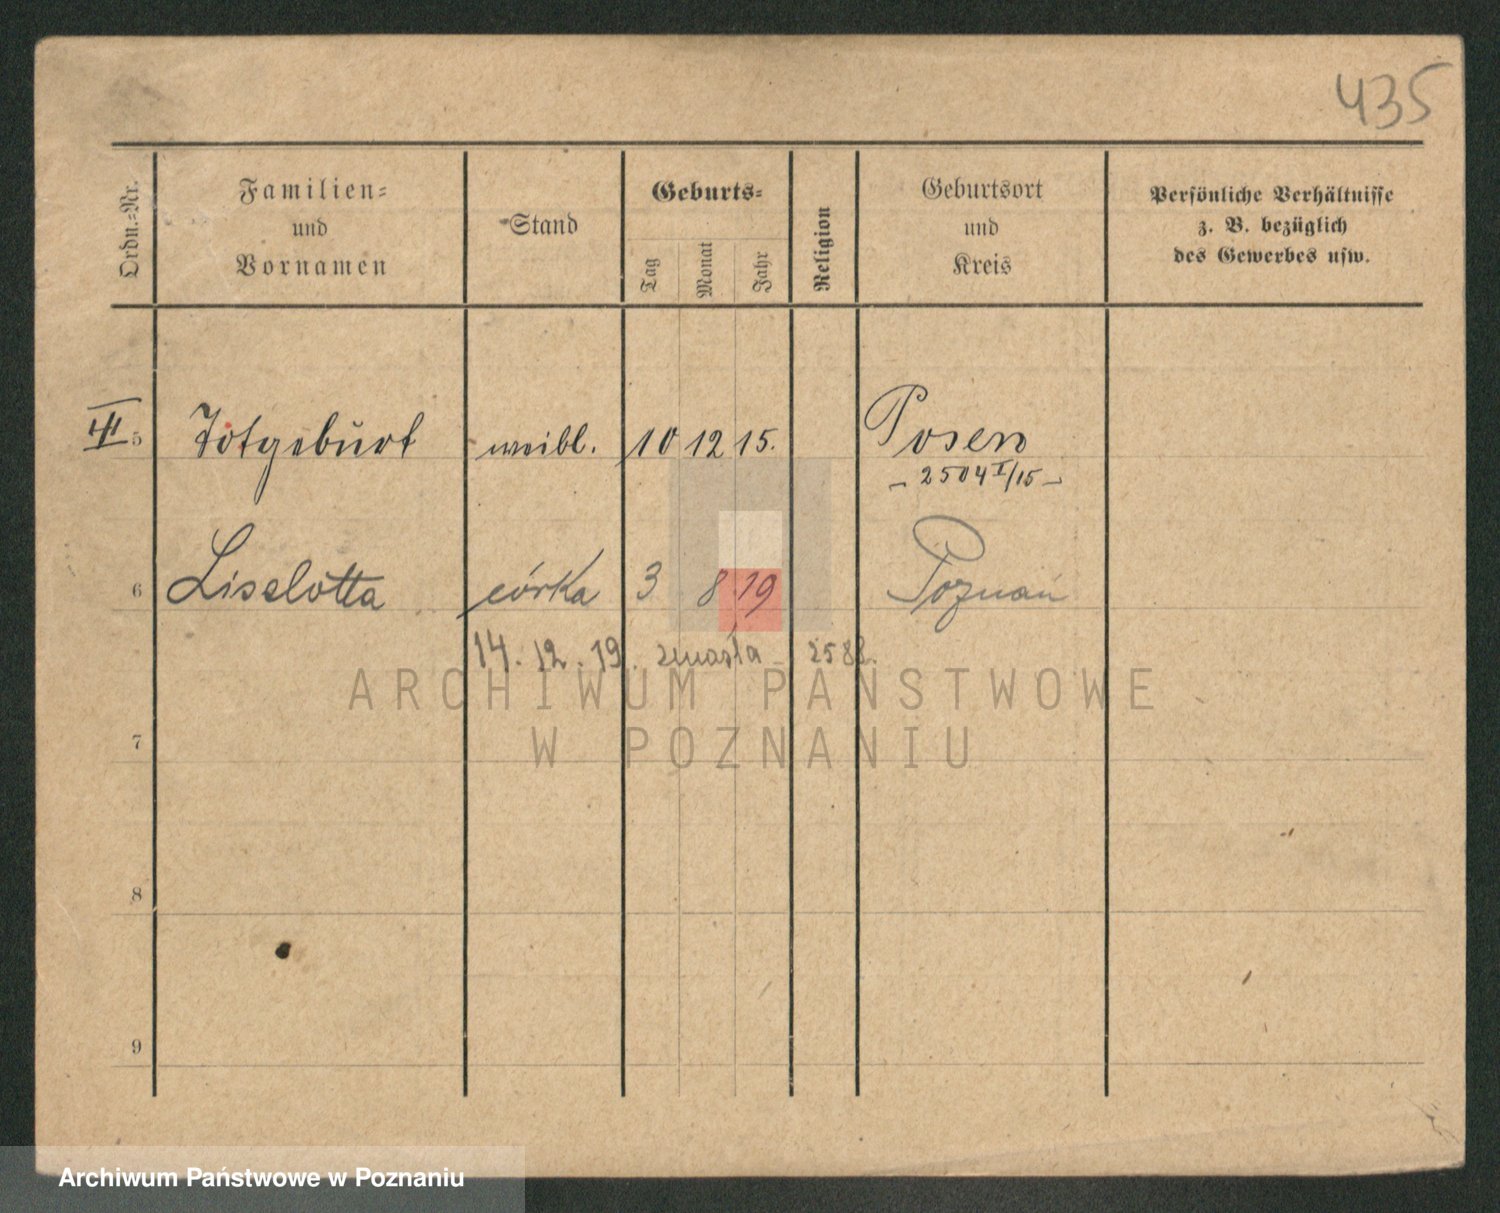 435
Ordn.-Nr.
Familien-
und
Vornamen
Stand
Geburts-
Tag
Monat
Jahr
Religion
Geburtsort
und
Kreis
Persönliche Verhältnisse
z. B. bezüglich
des Gewerbes usw.
III 5 Totgeburt weibl. 10 12 15. Posen
- 2504 I/15 -
6 Liselotta córka 3 8 19 Poznań
14. 12. 19. zmarła 2582.
ARCHIWUM PAŃSTWOWE
W POZNANIU
7
8
9
Archiwum Państwowe w Poznaniu